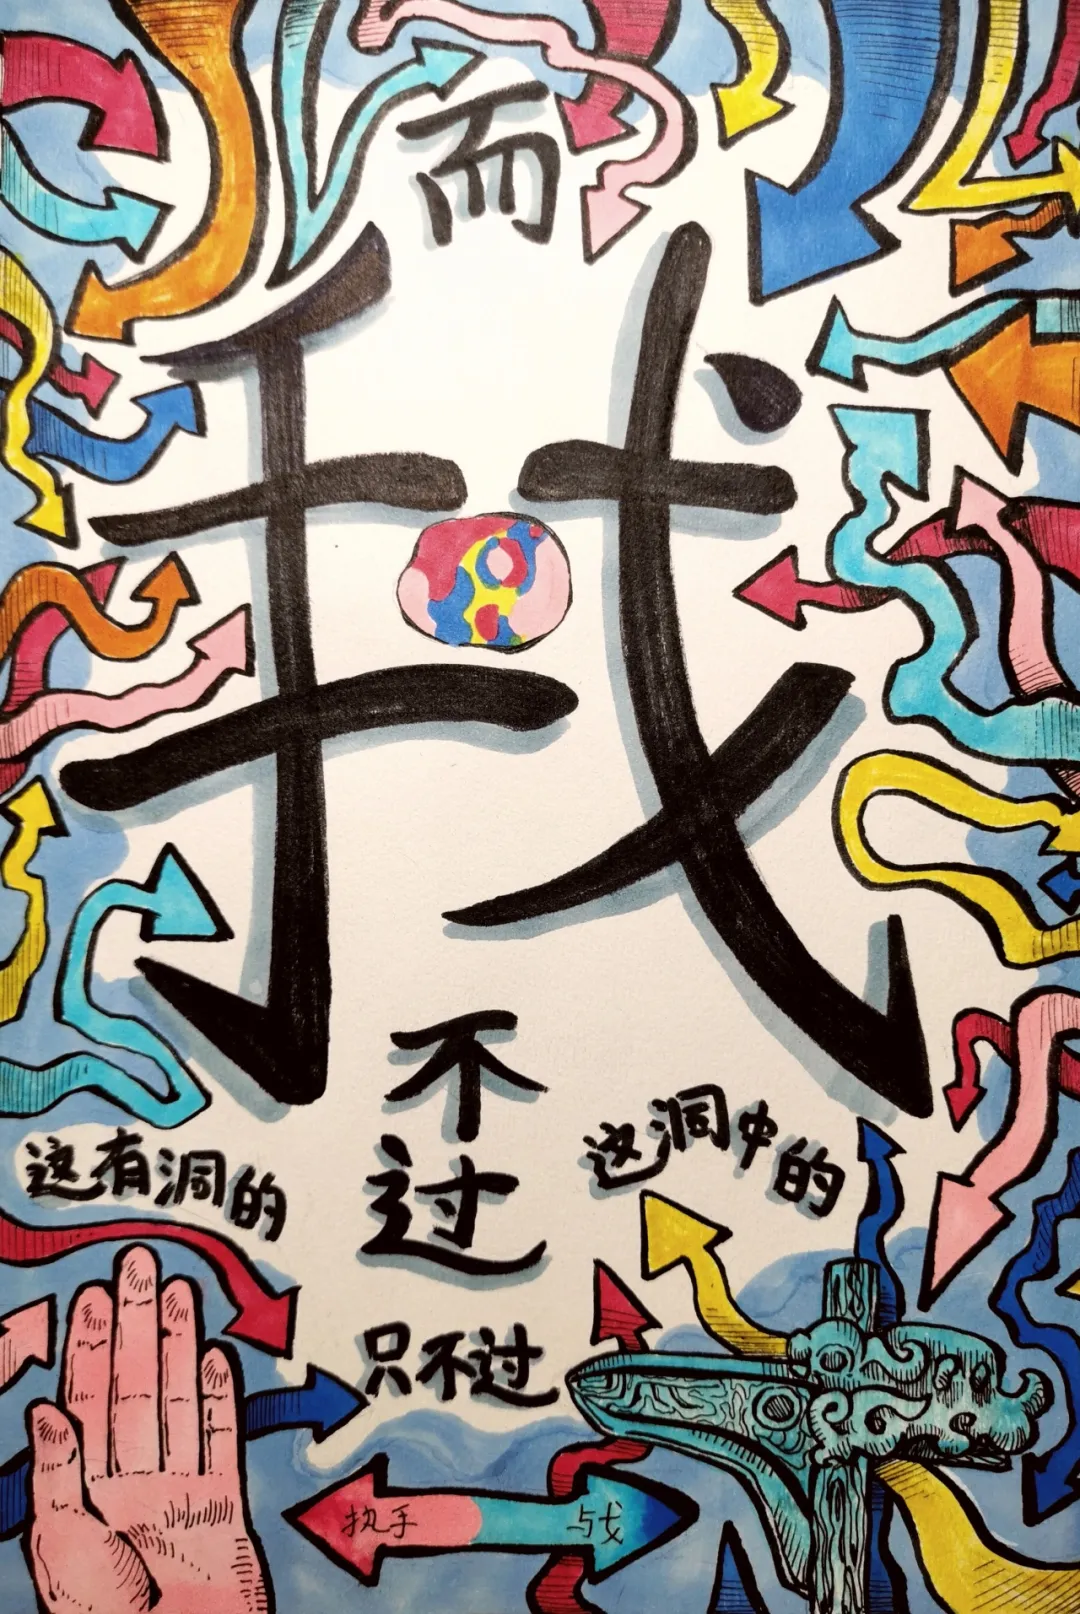 而
我
不
过
这有洞的
这洞中的
只不过
执手
与戈